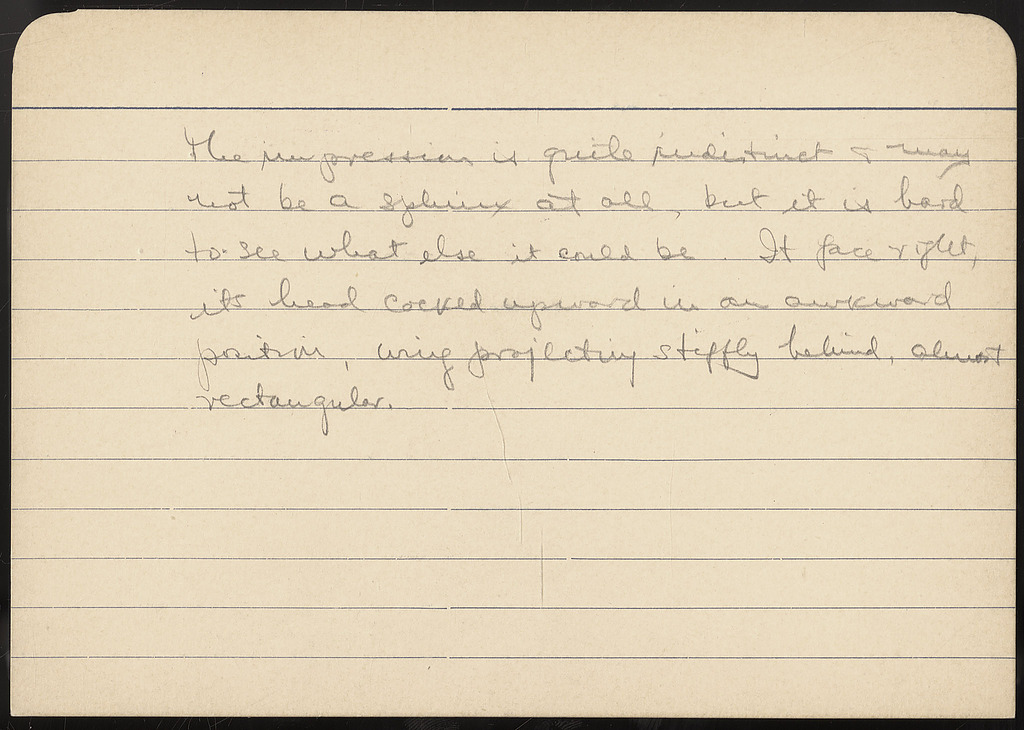 The impression is quite indistinct & may
not be a sphinx at all, but it is hard
to see what else it could be. It face right,
its head cocked upward in an awkward
position, wing projecting stiffly behind, almost
rectangular.